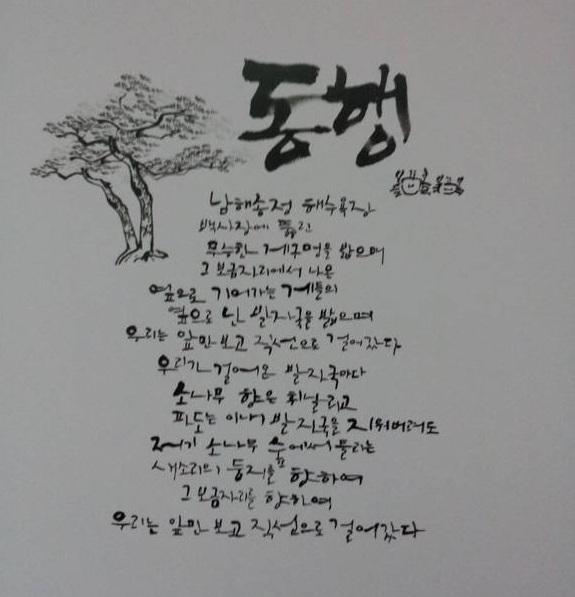 동행
남해송정 해수욕장
백사장에 뚫린
무수한 게구멍을 밟으며
그 보금자리에서 나온
옆으로 기어가는 게들의
옆으로 난 발자국을 밟으며
우리는 앞만 보고 직선으로 걸어갔다
우리가 걸어온 발자국마다
소나무 향은 휘날리고
파도는 이내 발자국을 지워버려도
저기 소나무 숲에서 들리는
새소리의 둥지를 향하여
그 보금자리를 향하여
우리는 앞만 보고 직선으로 걸어갔다